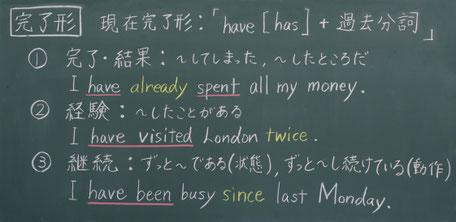 完了形 現在完了形:「have [has] + 過去分詞」
① 完了・結果:〜してしまった,〜したところだ
I have already spent all my money.
② 経験:〜したことがある
I have visited London twice.
③ 継続:ずっと〜である(状態),ずっと〜し続けている(動作)
I have been busy since last Monday.